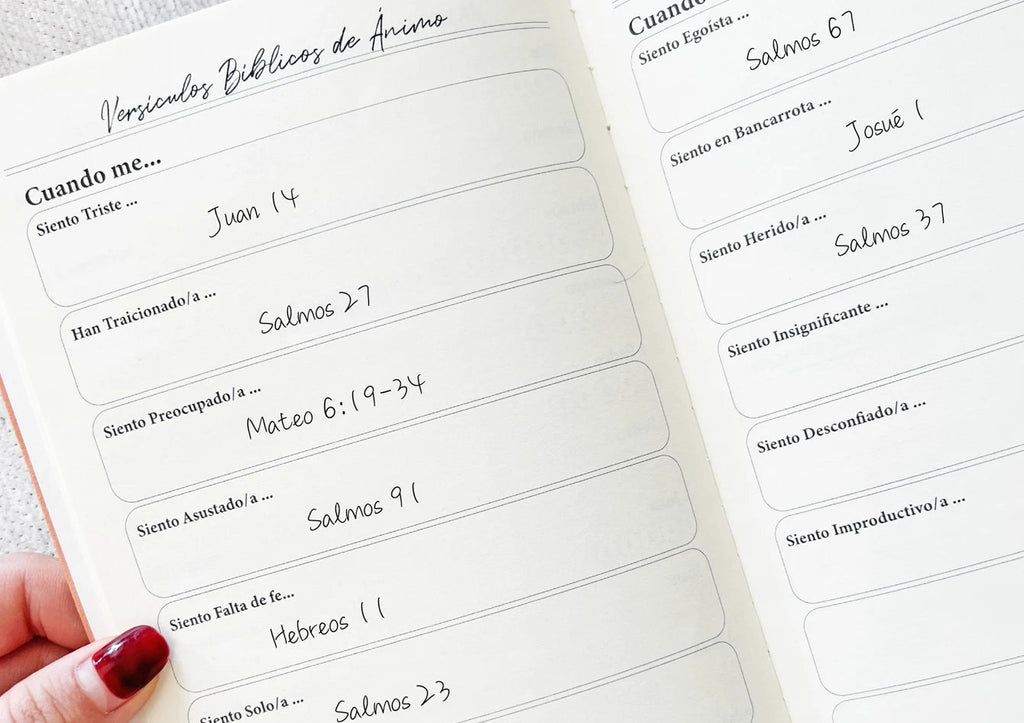 Versículos Bíblicos de Ánimo
Cuando me...
Siento Triste ...
Juan 14
Han Traicionado/a ...
Salmos 27
Siento Preocupado/a ...
Mateo 6:19-34
Siento Asustado/a ...
Salmos 91
Siento Falta de fe...
Hebreos 11
Siento Solo/a ...
Salmos 23
Cuando
Siento Egoísta ...
Salmos 67
Siento en Bancarrota ...
Josué 1
Siento Herido/a ...
Salmos 37
Siento Insignificante ...
Siento Desconfiado/a ...
Siento Improductivo/a ...